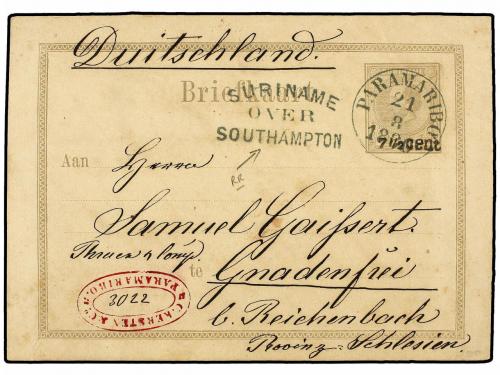 Duitschland.
Briefkaart
SURINAME
OVER
SOUTHAMPTON
PARAMARIBO
21
8
7½ cent
RR
Aan
Herrn
Samuel Gaissert.
te
Gnadenfrei
b. Reichenbach
Provinz = Schlesien.
C. KERSTEN & Co.
3022
PARAMARIBO.